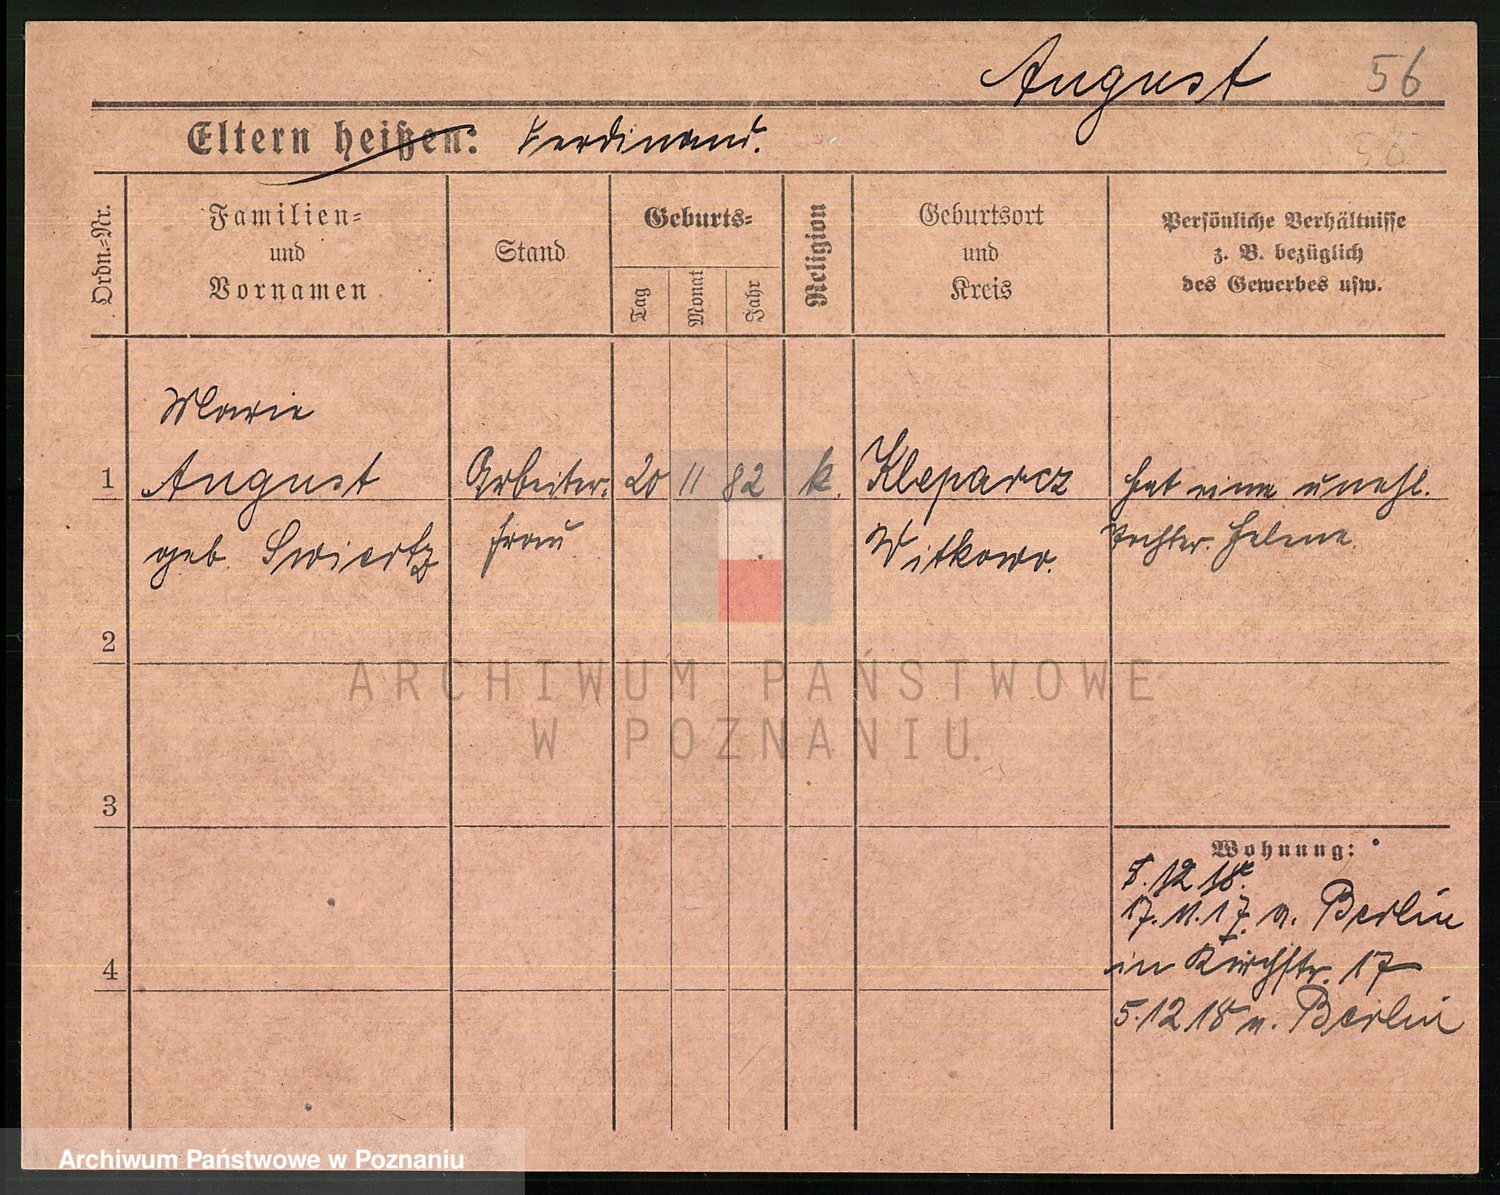 August 56
Eltern heißen: Ferdinand.
56
Ordn.=Nr.
Familien=
und
Vornamen
Stand
Geburts=
Tag
Monat
Jahr
Religion
Geburtsort
und
Kreis
Persönliche Verhältnisse
z. B. bezüglich
des Gewerbes usw.
Marie
1 August Arbeiter. 20 11 82 k. Kleparcz hat eine unehl.
geb. Swiertz frau Witkowo. Tochter. Helene.
2
ARCHIWUM PAŃSTWOWE
W POZNANIU
3
Wohnung:
5.12 18.
17.11.17. n. Berlin
in Kirchstr. 17
4
5.12 18 n. Berlin
Archiwum Państwowe w Poznaniu